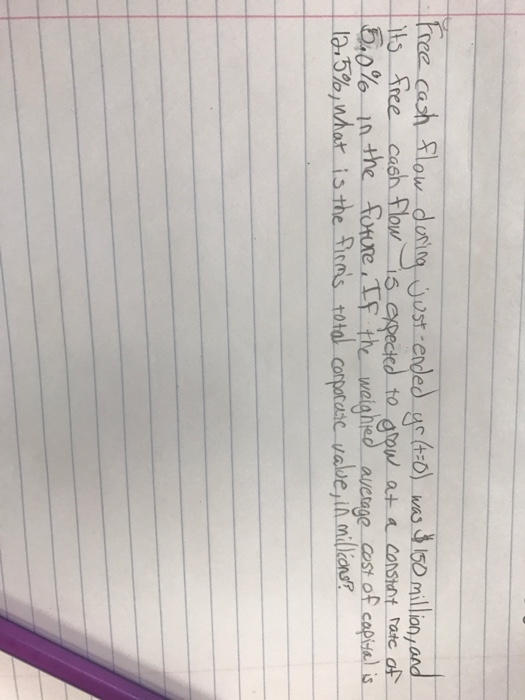 Free cash flow during just-ended yr (t=0) was $150 million, and
its free cash flow is expected to grow at a constant rate of
5.0% in the future. If the weighted average cost of capital is
12.5%, what is the firm's total corporate value, in millions?